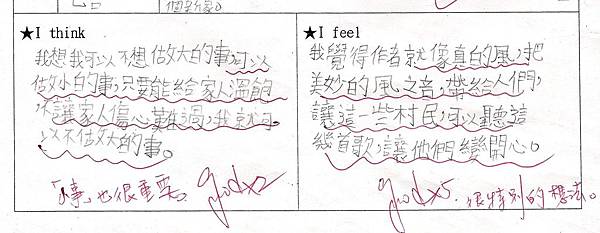 ★I think
我想我可以不想做大的事,可以
做小的事,只要能給家人溫飽
,不讓家人傷心難過,我就可
以不做大的事。
事」也很重要。goodx2
★I feel
我覺得作者就像真的風,把
美妙的風之音,帶給人們,
讓這一些村民,可以聽這
幾首歌,讓他們變開心。
goodx5.很特別的想法。